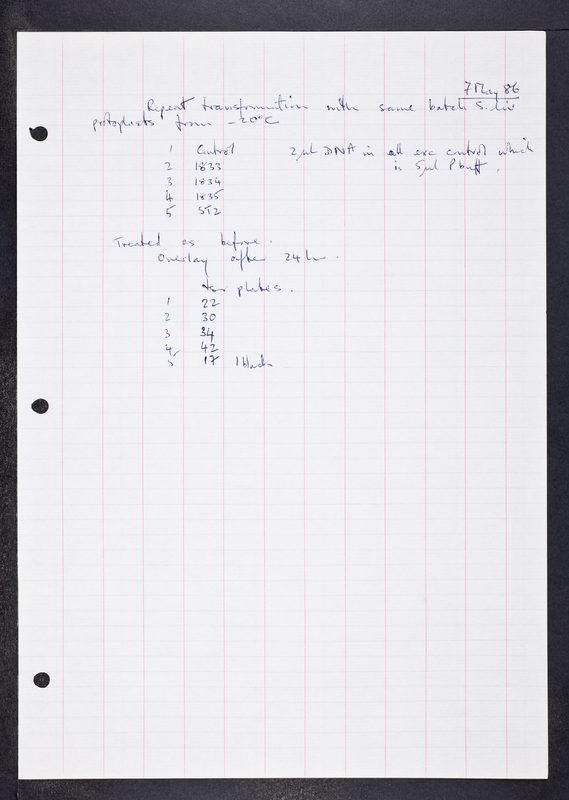 7 May 86
Repeat transformation with same batch S. liv
protoplasts from -20°C
1 Control 2µl DNA in all exc control which
2 1833 is 5µl P buff.
3 1834
4 1835
5 ST2
Treated as before.
Overlay after 24hr.
tsr plates.
1 22
2 30
3 34
4 42
5 17 1 black